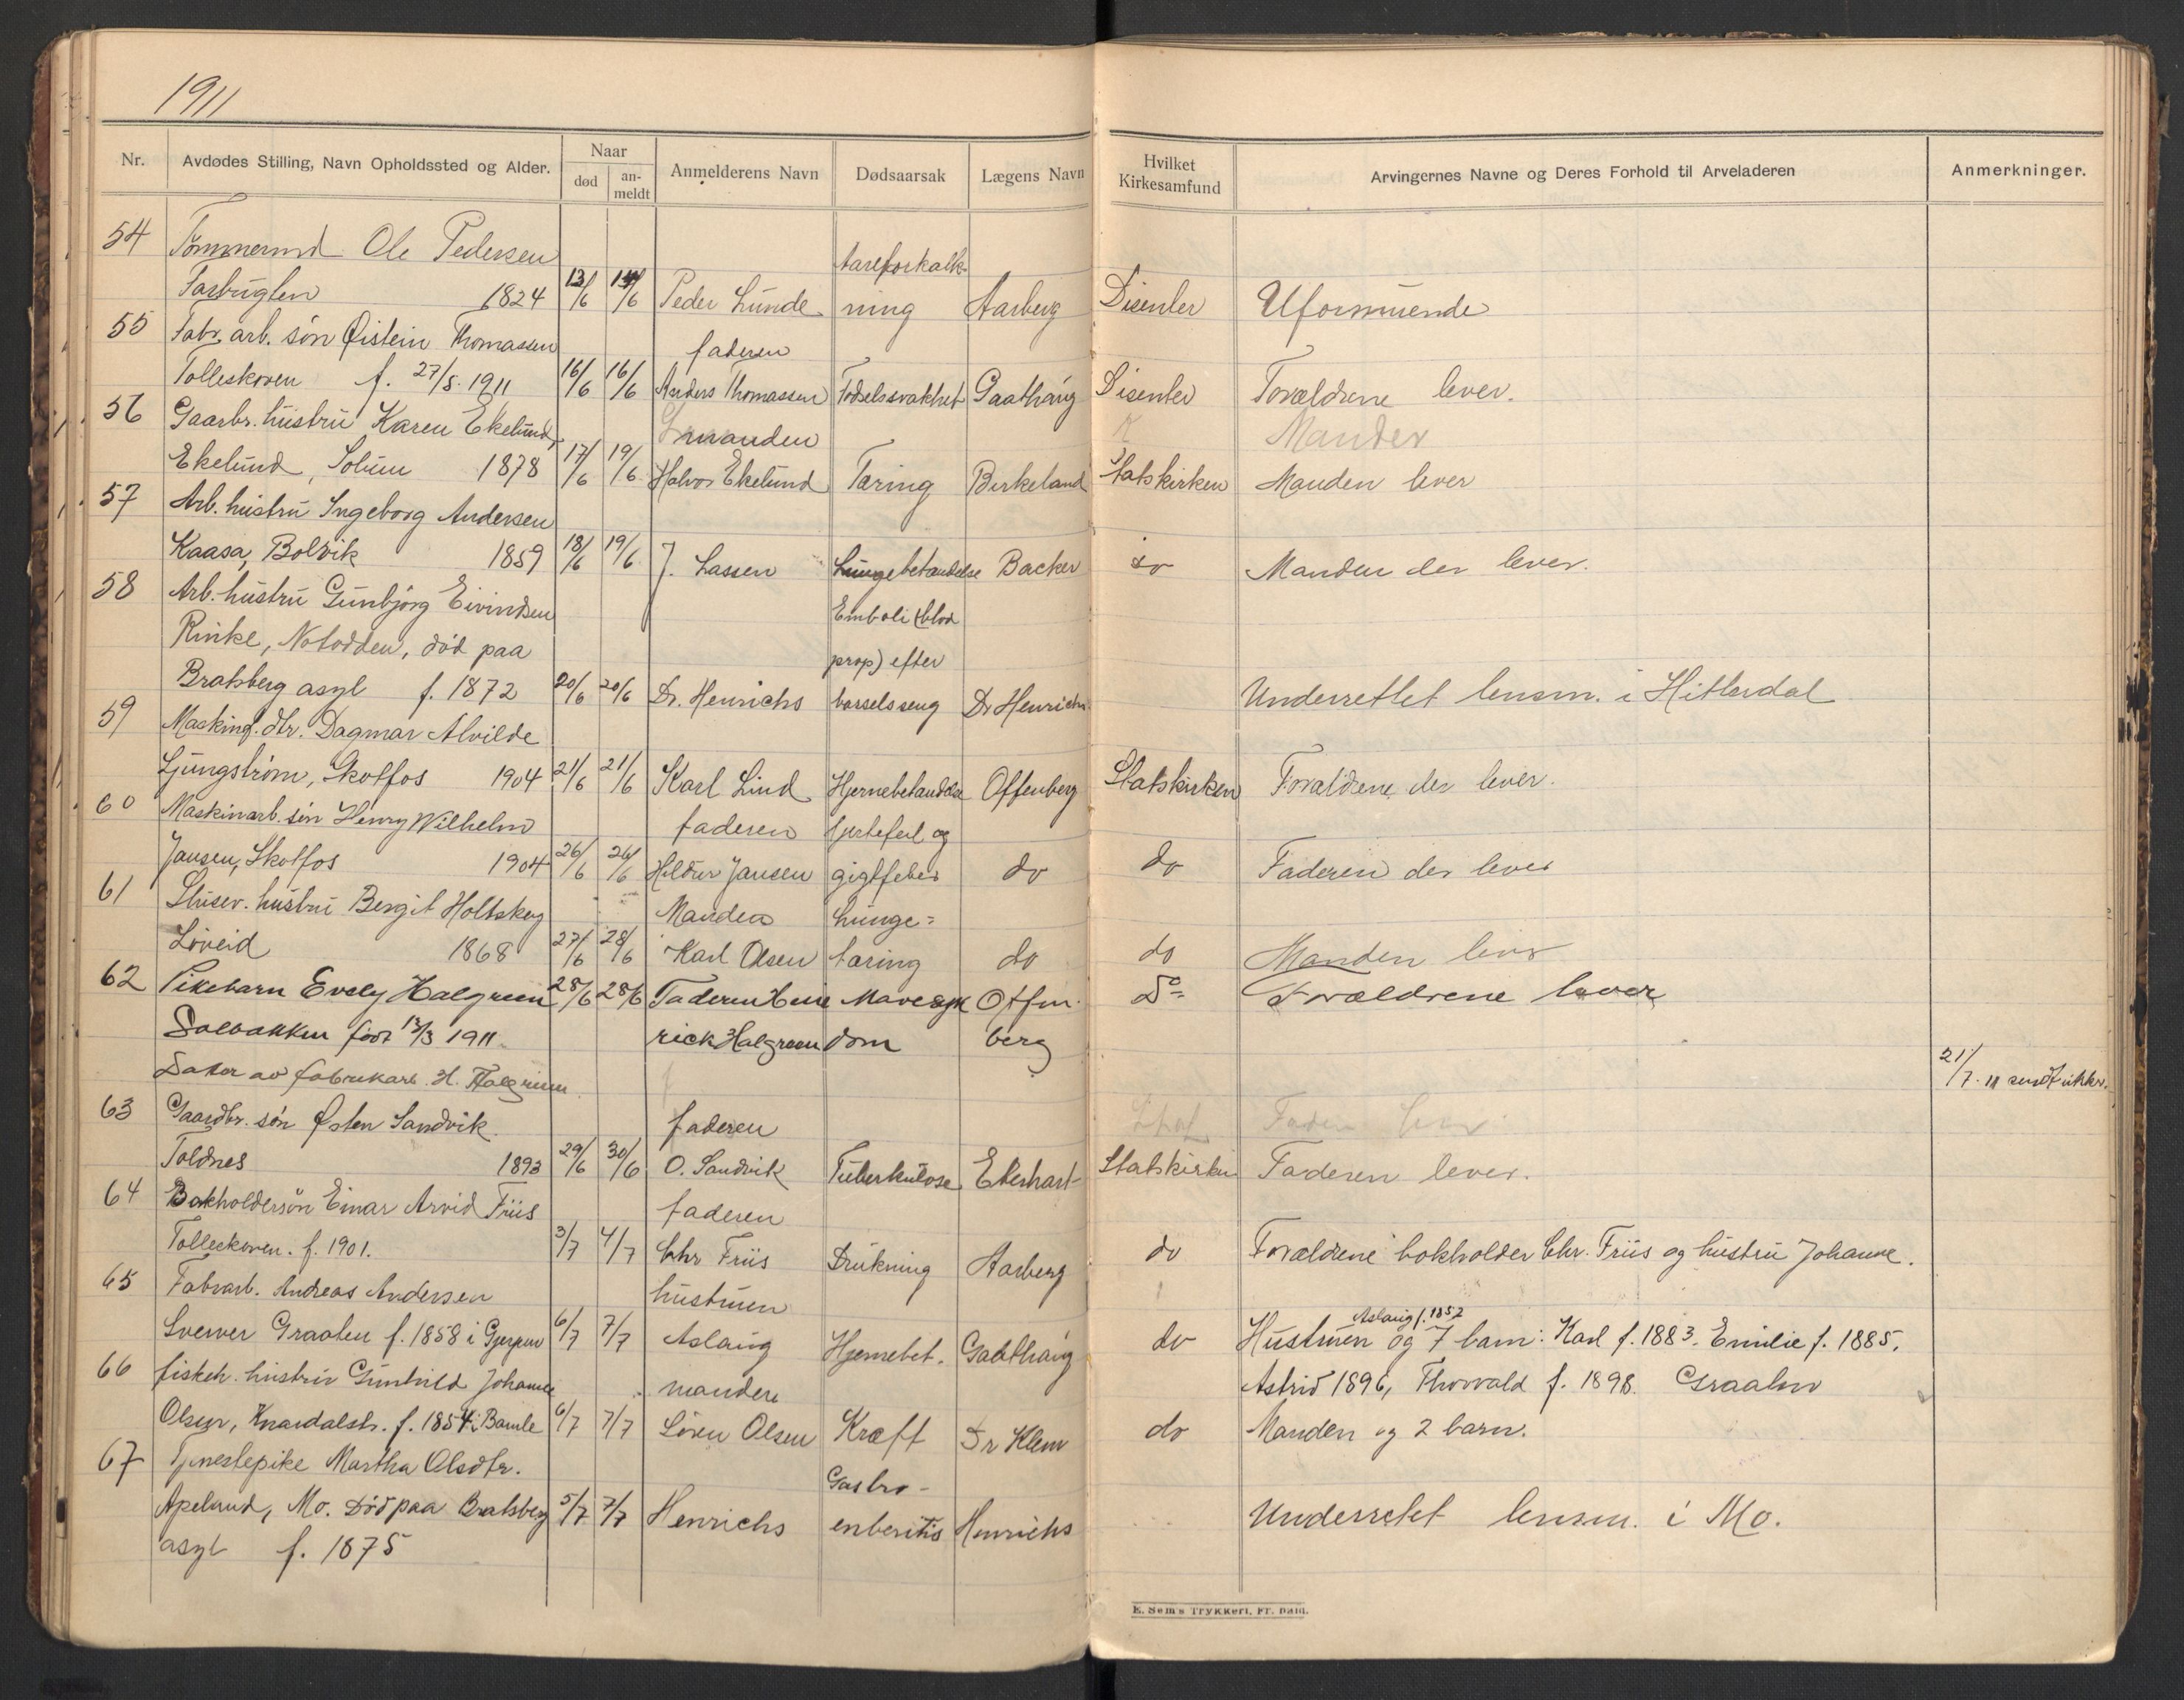 1911
Nr. Avdødes Stilling, Navn Opholdssted og Alder. Naar død an-meldt Anmelderens Navn Dødsaarsak Lægens Navn Hvilket Kirkesamfund Arvingernes Navne og Deres Forhold til Arveladeren Anmerkninger.
54 Tømmermd Ole Pedersen Aareforkalk-
1824 13/6 14/6 Peder Lunde ning Aarberg Disenter Uformuende
55 Fabr. arb. søn Øistein Thomassen faderen
Tolleskoven f. 27/5. 1911 16/6 16/6 Anders Thomassen Fødselssvakhet Gaathaug Disenter Forældrene lever.
56 Gaarbr. hustru Karen Ekelund, manden Manden
Ekelund, Solum 1878 17/6 19/6 Halvor Ekelund Tæring Birkeland Statskirken Manden lever
57 Arb. hustru Ingeborg Andersen
Kaasa, Bolvik 1859 18/6 19/6 J. Lassen Lungebetændelse Backer do Manden der lever.
58 Arb. hustru Gunbjørg Eivindsen Emboli (blod
Rinke, Notodden, død paa prop) efter
Bratsberg asyl f. 1872 20/6 20/6 Dr. Henrichs barselseng Dr Henrichs Underrettet lensm. i Hitterdal
59 Maskinf. dtr. Dagmar Alvilde
Ljungstrøm, Skotfos 1904 21/6 21/6 Karl Lind Hjernebetændelse Offenberg Statskirken Forældrene der lever.
60 Maskinarb. søn Henry Wilhelm faderen hjertefeil og
Jansen, Skotfos 1904 26/6 26/6 Hildur Jansen gigtfeber do do Faderen der lever
61 Slusev. hustru Bergit Holtskog Manden Lunge=
Løveid 1868 27/6 28/6 Karl Olsen tæring do do Manden lever
62 Pikebarn Evely Halgreen 28/6 28/6 Faderen Hen Mavesyk Offen- Do= Forældrene lever
Solbakken født 13/3 1911. rick Halgreen dom berg
Dater av fabrikarb. H. Halgreen 21/7. 11 sendt
63 Gaardbr. søn Østen Sandvik faderen Faderen lever
Toldnes 1893 29/6 30/6 O. Sandvik Tuberkulose Eberhart Statskirken Faderen lever.
64 Bokholdersøn Einar Arvid Friis faderen
Tolleskoven. f. 1901. 3/7 4/7 Chr Friis Drukning Aarberg do Forældrene bokholder Chr. Friis og hustru Johanne.
65 Fabrarb. Andreas Andersen hustruen Aslaug f. 1857
Sverver Graaten f. 1858 i Gjerpen 6/7 7/7 Aslaug Hjernebet. Gaathaug do Hustruen og 7 barn: Karl f. 1883. Emilie f. 1885.
66 fiskeh. hustru Gunhild Johanne manden Astrid 1896, Thorvald f. 1898. Graaten
Olsen, Knardalstr. f. 1854 i Bamle 6/7 7/7 Søren Olsen Kræft Dr Klem do Manden og 2 barn.
67 Tjenestepike Martha Olsdtr. Gastro-
Apeland, Mo. Død paa Bratsberg 5/7 7/7 Henrichs enteritis Henrichs Underrettet lensm. i Mo.
asyl f. 1875
E. Sem's Trykkeri, Fr.hald.